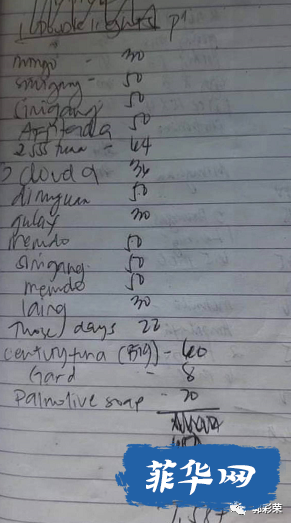 mongo - 30
sinigang - 50
sinigang 50
Afritada 50
2 555 tuna - 44
2 cloud 9 36
dinuguan 50
gulay 30
menudo 50
sinigang 50
menudo 50
laing 30
Those days 22
century tuna (Big) - 40
Gard - 8
Palmolive soap - 20
菲华网